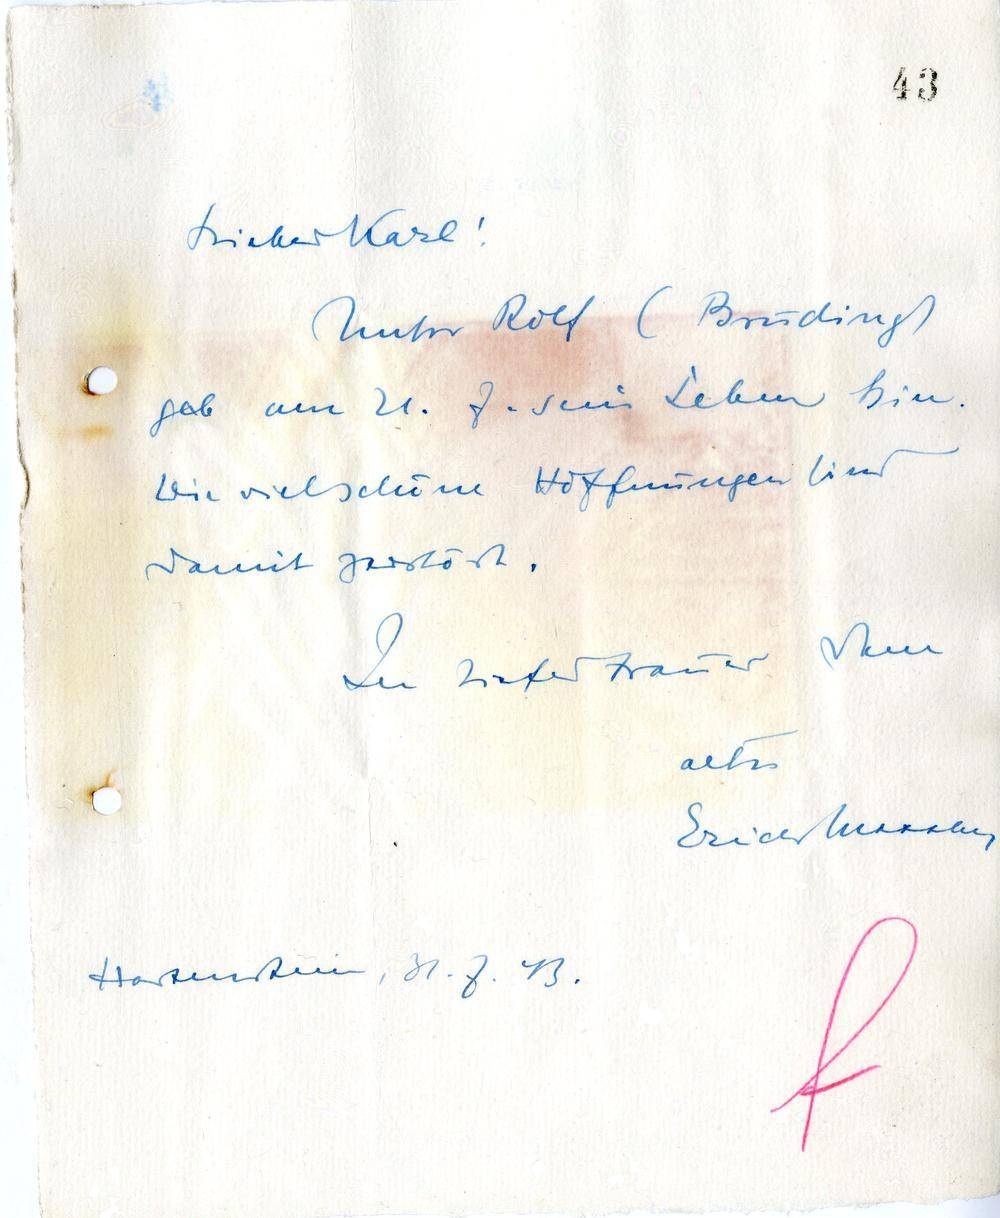 43
Lieber Karl!
Unser Rolf (Bruding)
gab am 21. 7. sein Leben hin.
Wie viel schöne Hoffnungen sind
damit zerstört.
In tiefer Trauer Dein
alter
Erich
Hartenstein, 31. 7. 43.